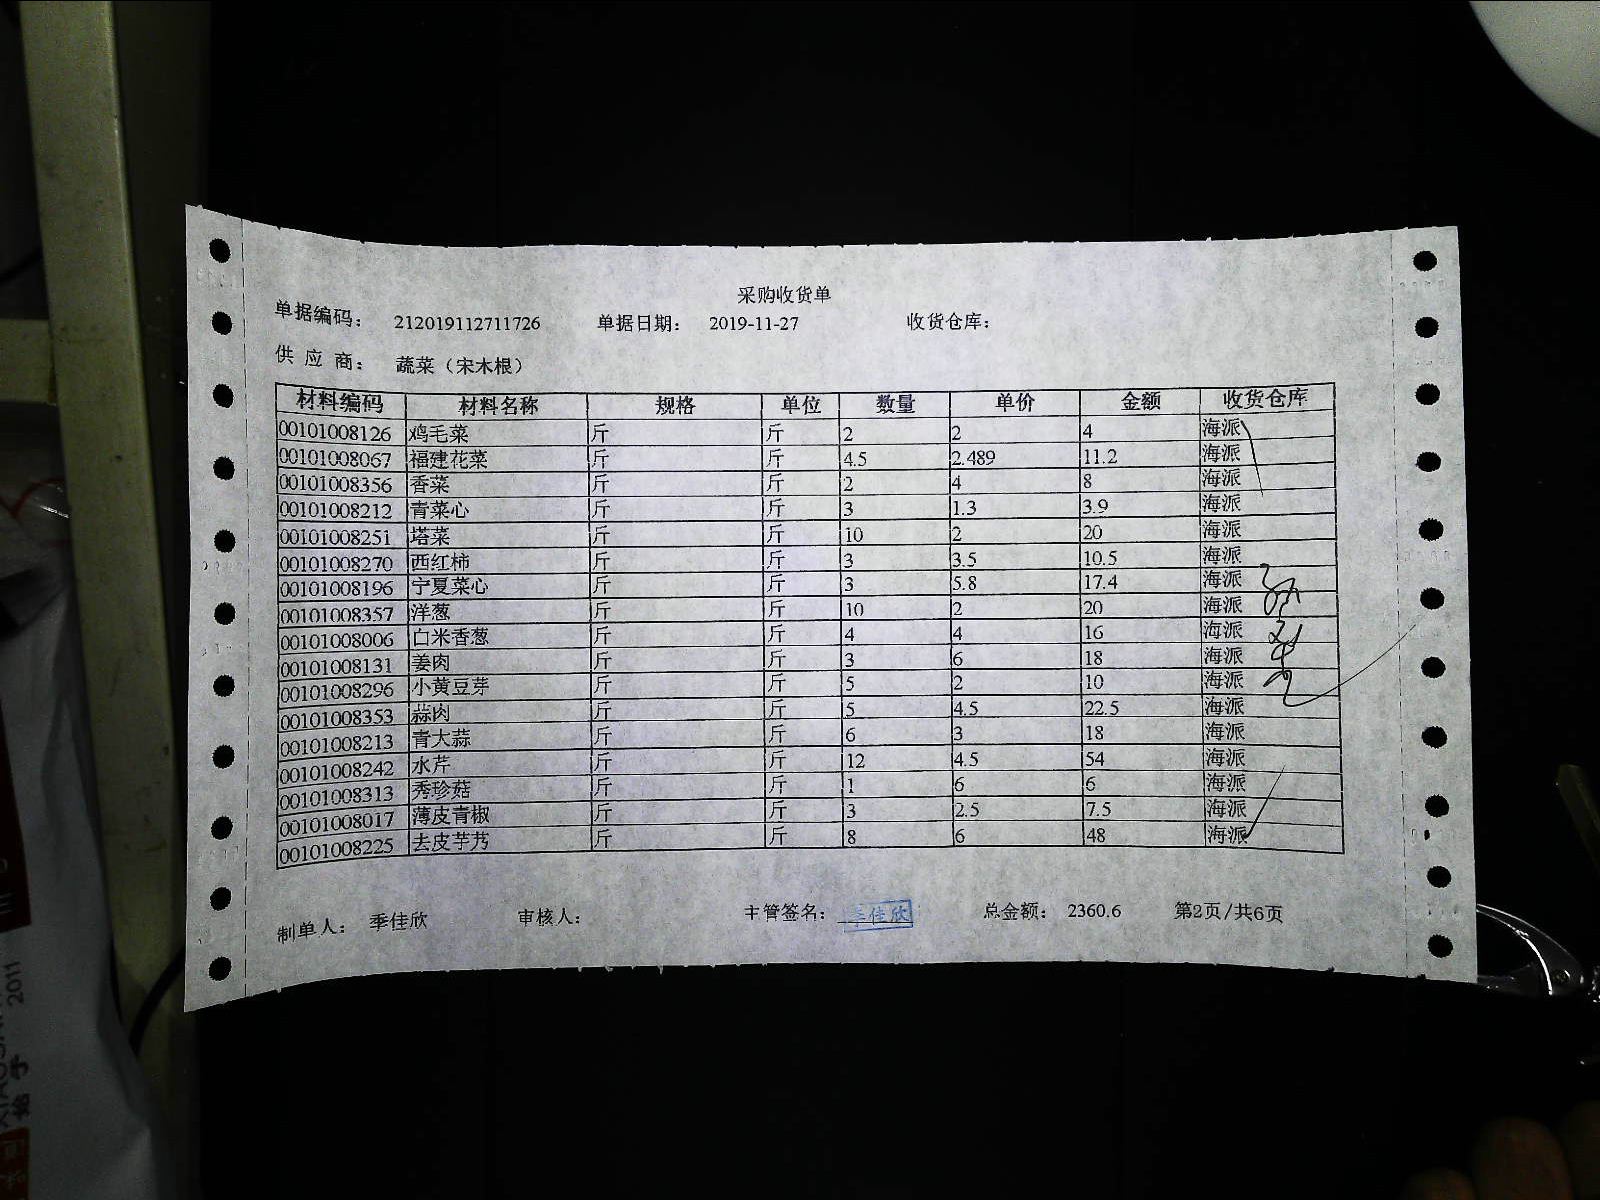 采购收货单
单据编码： 212019112711726 单据日期： 2019-11-27 收货仓库：
供应商： 蔬菜（宋木根）
材料编码 材料名称 规格 单位 数量 单价 金额 收货仓库
00101008126 鸡毛菜 斤 斤 2 2 4 海派
00101008067 福建花菜 斤 斤 4.5 2.489 11.2 海派
00101008356 香菜 斤 斤 2 4 8 海派
00101008212 青菜心 斤 斤 3 1.3 3.9 海派
00101008251 塔菜 斤 斤 10 2 20 海派
00101008270 西红柿 斤 斤 3 3.5 10.5 海派
00101008196 宁夏菜心 斤 斤 3 5.8 17.4 海派
00101008357 洋葱 斤 斤 10 2 20 海派
00101008006 白米香葱 斤 斤 4 4 16 海派
00101008131 姜肉 斤 斤 3 6 18 海派
00101008296 小黄豆芽 斤 斤 5 2 10 海派
00101008353 蒜肉 斤 斤 5 4.5 22.5 海派
00101008213 青大蒜 斤 斤 6 3 18 海派
00101008242 水芹 斤 斤 12 4.5 54 海派
00101008313 秀珍菇 斤 斤 1 6 6 海派
00101008017 薄皮青椒 斤 斤 3 2.5 7.5 海派
00101008225 去皮芋艿 斤 斤 8 6 48 海派
制单人： 季佳欣 审核人： 主管签名： 季佳欣 总金额： 2360.6 第2页/共6页
2011